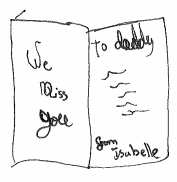 We
Miss
you
To daddy
from
isabelle